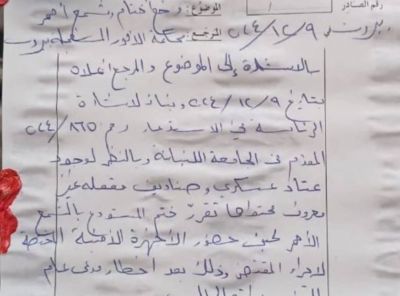 رقم الصادر
الموضوع: وضع أختام وشمع أحمر
بيروت في ٩/١٢/٢٠٢٤ المرجع: محكمة الأمور المستعجلة بيروت
بالاستناد إلى الموضوع والمرجع اعلاه
بتاريخ ٩/١٢/٢٠٢٤ وبناء لاشارة
الرئاسة في الاستدعاء رقم ٨٦٥/٢٠٢٤
المقدم من الجامعة اللبنانية وبالنظر لوجود
عتاد عسكري وصناديق مقفلة غير
معروف محتواها تقرر ختم المستودع بالشمع
الأحمر لحين حضور الأجهزة الأمنية المختصة
لاجراء المقتضى وذلك بعد اخطار مدعي عام